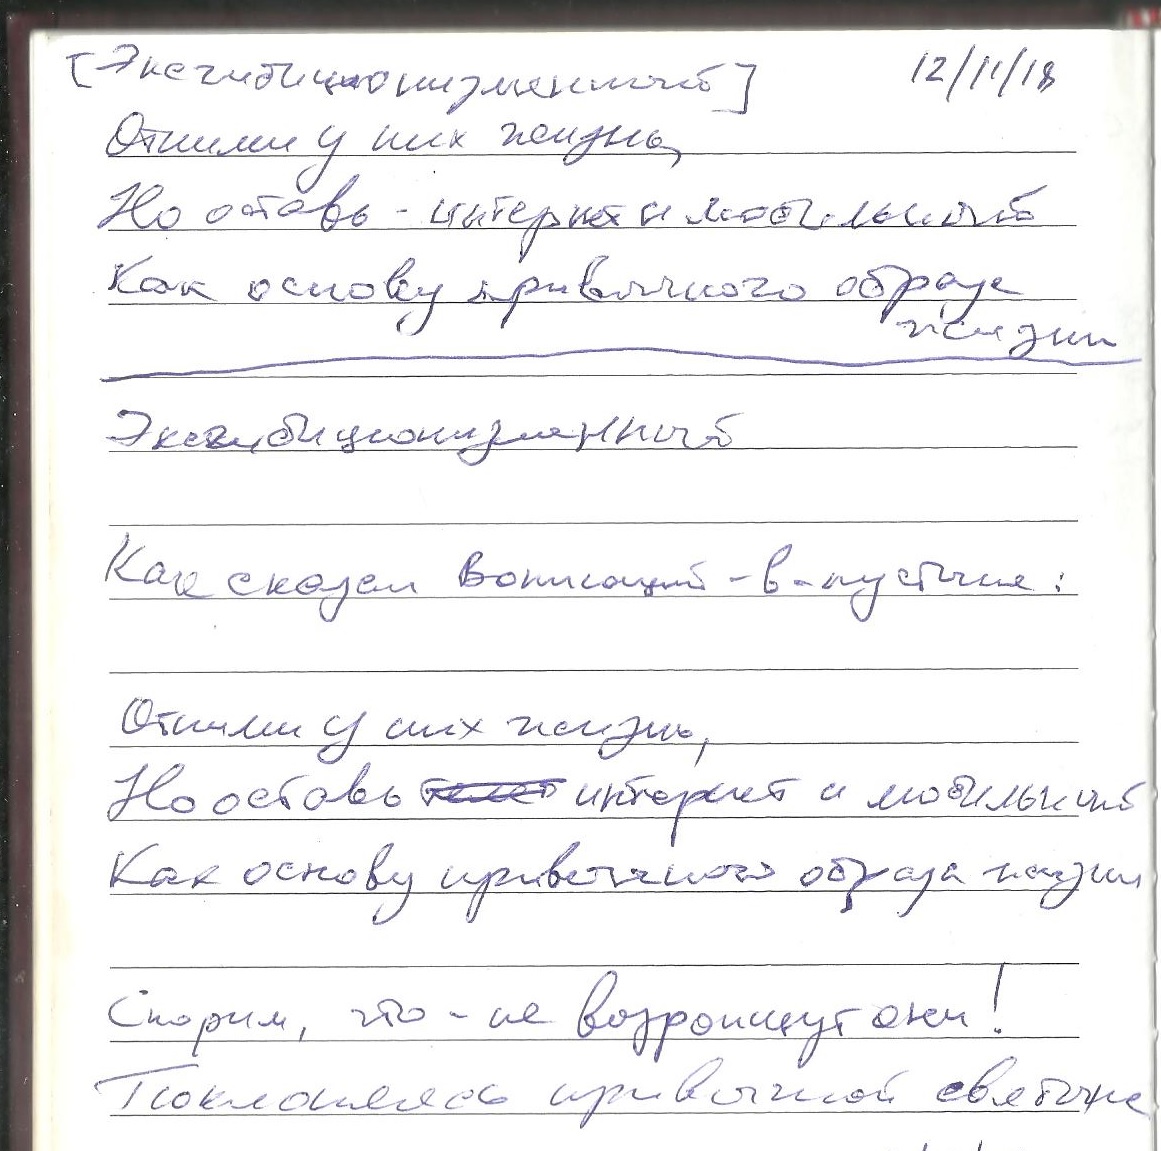 [Эксгибиционизменный] 12/11/18
Отними у них жизнь,
Но оставь - интернет и мобильный
Как основу привычного образа
жизни
Эксгибиционизменный
Как сказал Вопиющий-в-пустыне:
Отними у них жизнь,
Но оставь интернет и мобильный
Как основу привычного образа жизни
Спорим, что - не возропщут они!
Поклоняясь привычной святыне